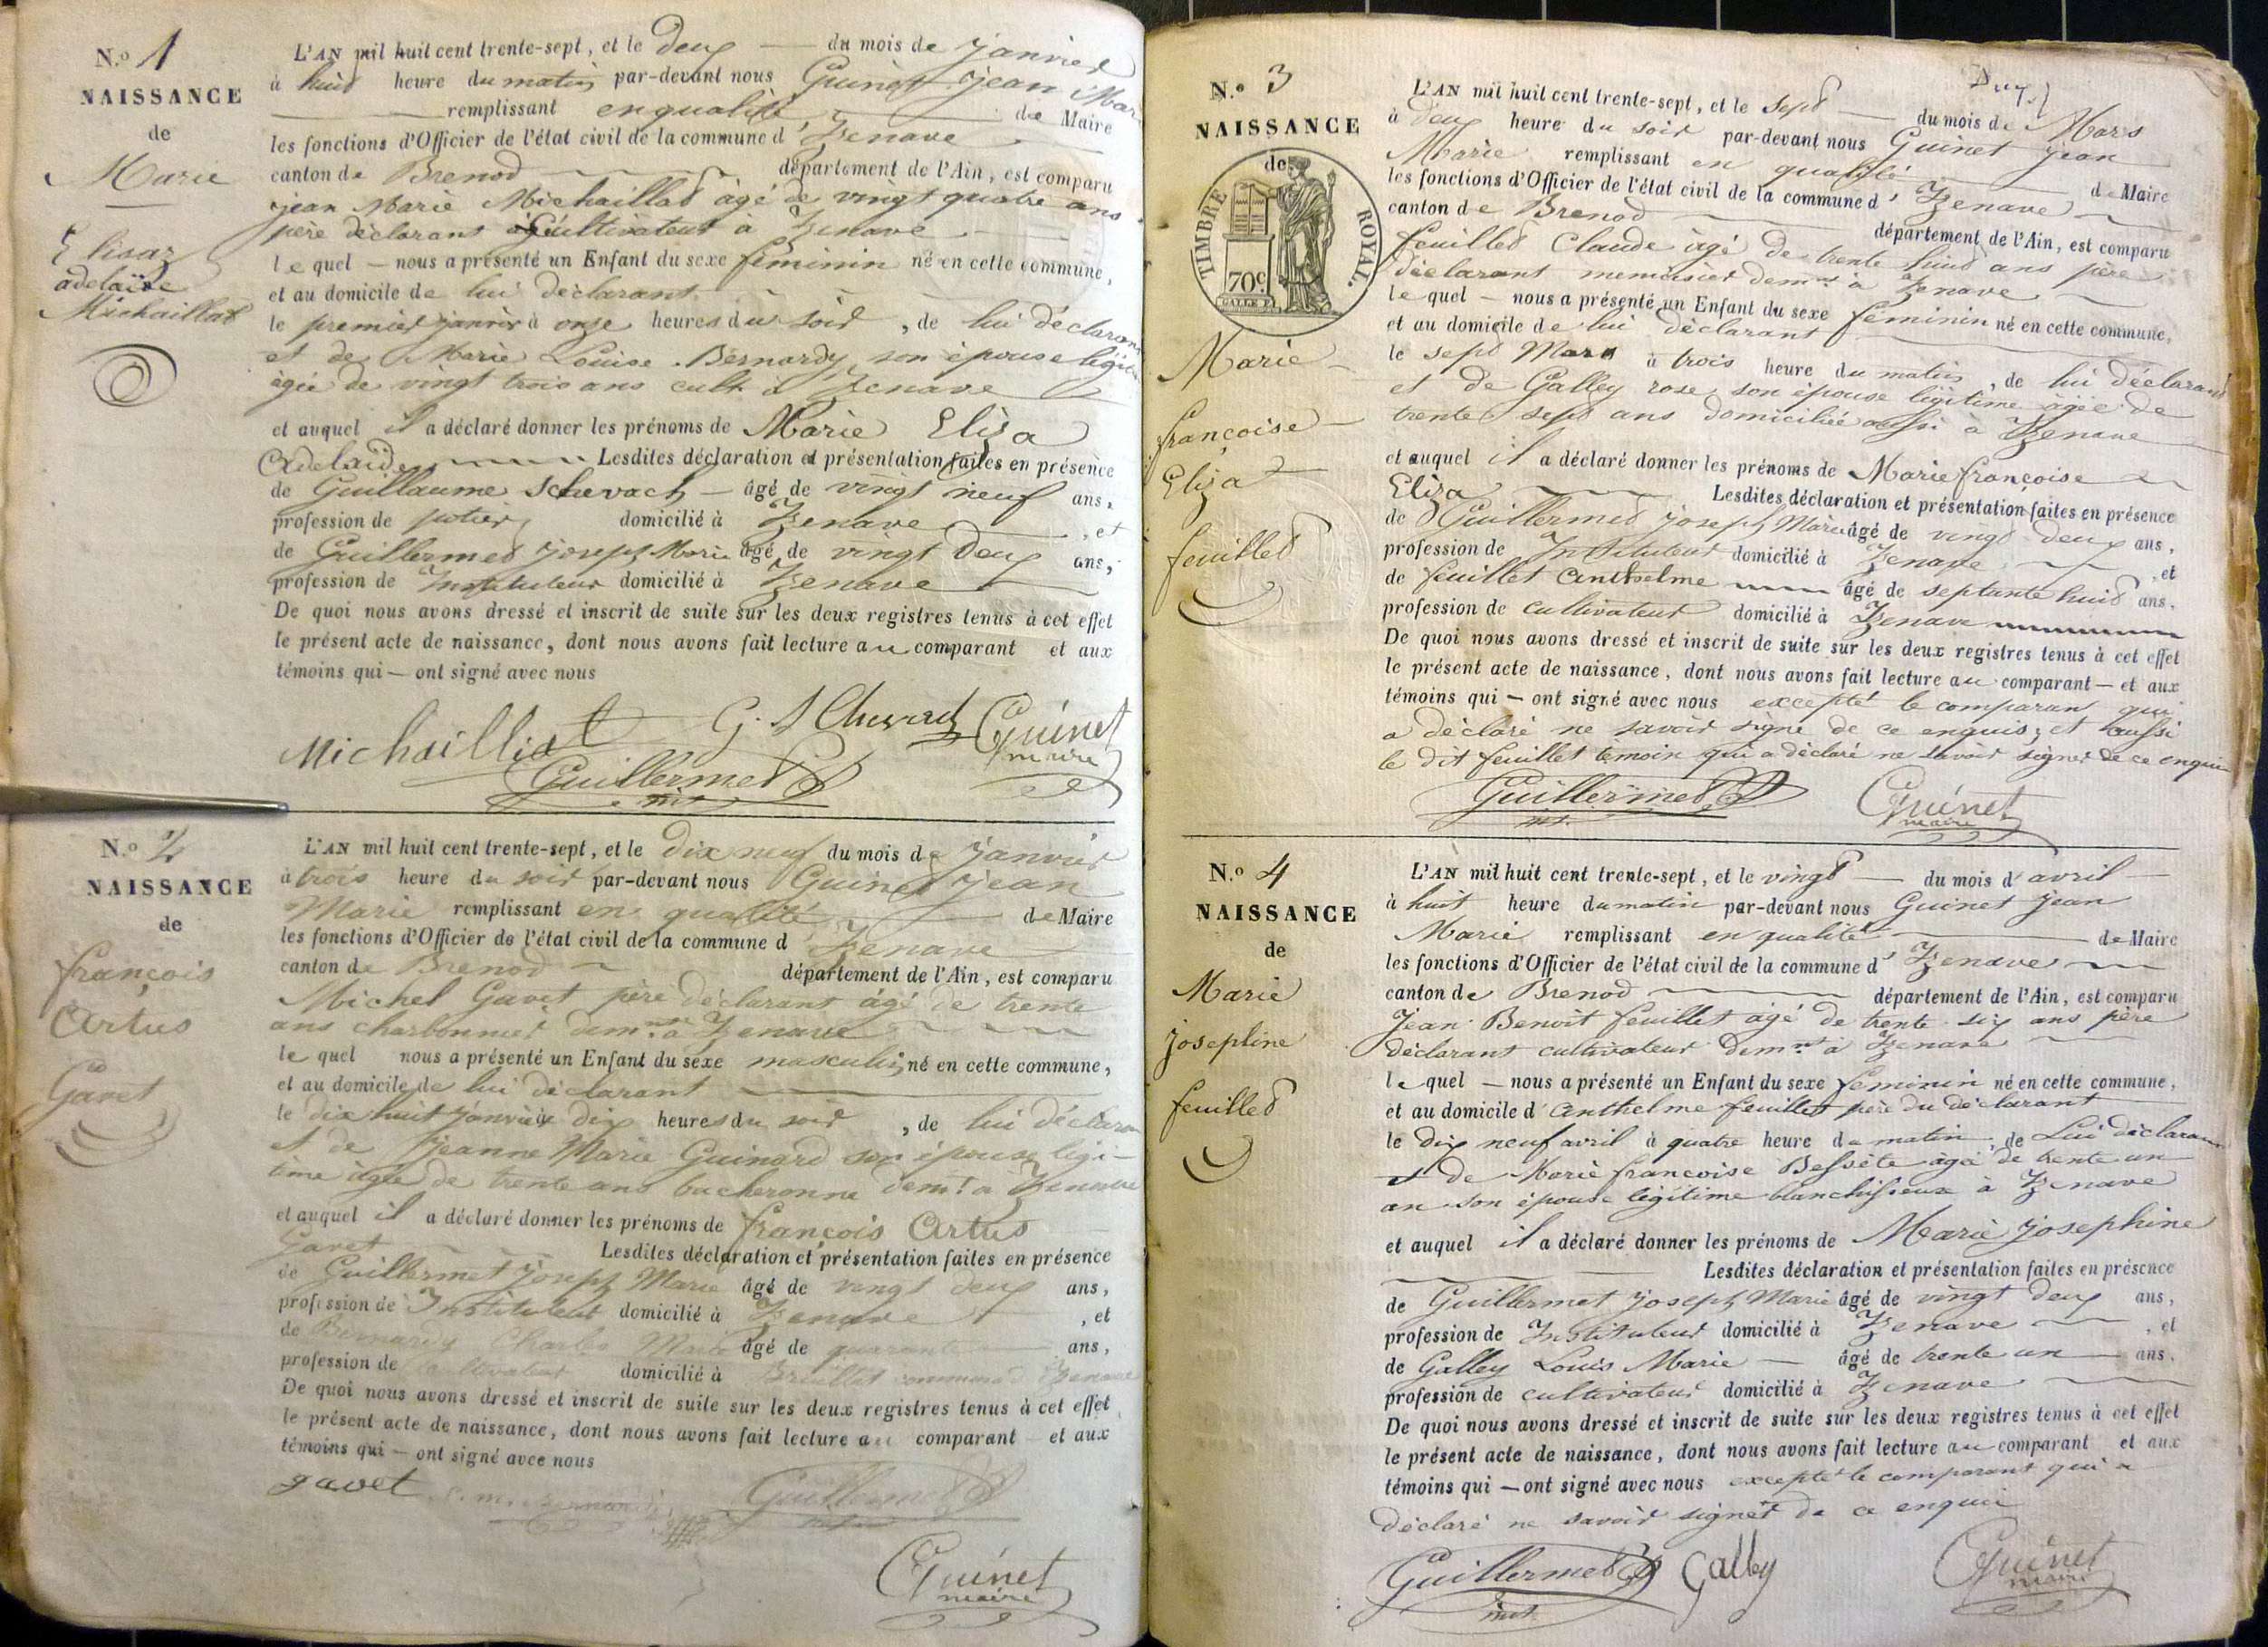 N.o 1
NAISSANCE
de
Marie
Elisaz
adelaïde
Michaillat
L'AN mil huit cent trente-sept, et le deux du mois de janvier
à huit heure du matin par-devant nous Guinet jean Mar
remplissant en qualité de Maire
les fonctions d'Officier de l'état civil de la commune d' Izenave
canton de Brenod département de l'Ain, est comparu
jean Marie Michaillat âgé de vingt quatre ans
père déclarant cultivateur à Izenave
lequel — nous a présenté un Enfant du sexe féminin né en cette commune,
et au domicile de lui déclarant
le premier janvier à onze heures du soir, de lui déclarant
et de Marie Louise Bernardy son épouse légit
âgée de vingt trois ans cult. à Izenave
et auquel il a déclaré donner les prénoms de Marie Eliza
Adelaïde Lesdites déclaration et présentation faites en présence
de Guillaume Schevach — âgé de vingt neuf ans,
profession de potier domicilié à Izenave, et
de Guillermet joseph Marie âgé de vingt deux ans,
profession de Instituteur domicilié à Izenave
De quoi nous avons dressé et inscrit de suite sur les deux registres tenus à cet effet
le présent acte de naissance, dont nous avons fait lecture au comparant et aux
témoins qui — ont signé avec nous
Michaillat G. Guinet
maire
Guillermet
N.o 2
NAISSANCE
de
françois
Artus
Gavet
L'AN mil huit cent trente-sept, et le dix neuf du mois de janvier
à trois heure du soir par-devant nous Guinet jean
Marie remplissant en qualité de Maire
les fonctions d'Officier de l'état civil de la commune d' Izenave
canton de Brenod département de l'Ain, est comparu
Michel Gavet père déclarant âgé de trente
ans charbonnier demnt à Izenave
lequel nous a présenté un Enfant du sexe masculin né en cette commune,
et au domicile de lui déclarant
le dix huit janvier à dix heures du soir, de lui déclarant
et de jeanne Marie Guinard son épouse légi-
time âgée de trente ans bucheronne demt à Izenave
et auquel il a déclaré donner les prénoms de françois Artus
Gavet Lesdites déclaration et présentation faites en présence
de Guillermet joseph Marie âgé de vingt deux ans,
profession de Instituteur domicilié à Izenave, et
de Bernardy Charles Marie âgé de quarante ans,
profession de cultivateur domicilié à commune d' Izenave
De quoi nous avons dressé et inscrit de suite sur les deux registres tenus à cet effet
le présent acte de naissance, dont nous avons fait lecture au comparant et aux
témoins qui — ont signé avec nous
gavet Guillermet
Guinet
maire
Deux
N.o 3
NAISSANCE
de
TIMBRE ROYAL.
70c.
Marie
françoise
Eliza
feuillet
L'AN mil huit cent trente-sept, et le sept du mois de Mars
à deux heure du soir par-devant nous Guinet jean
Marie remplissant en qualité de Maire
les fonctions d'Officier de l'état civil de la commune d' Izenave
canton de Brenod département de l'Ain, est comparu
feuillet Claude âgé de trente huit ans père
déclarant menuisier demnt à Izenave
lequel — nous a présenté un Enfant du sexe féminin né en cette commune,
et au domicile de lui déclarant
le sept Mars à trois heure du matin, de lui déclarant
et de Galley rose son épouse légitime âgée de
trente sept ans domiciliée aussi à Izenave
et auquel il a déclaré donner les prénoms de Marie françoise
Eliza Lesdites déclaration et présentation faites en présence
de Guillermet joseph Marie âgé de vingt deux ans,
profession de Instituteur domicilié à Izenave, et
de feuillet Anthelme âgé de septante huit ans,
profession de cultivateur domicilié à Izenave
De quoi nous avons dressé et inscrit de suite sur les deux registres tenus à cet effet
le présent acte de naissance, dont nous avons fait lecture au comparant — et aux
témoins qui — ont signé avec nous excepté le comparant qui
a déclaré ne savoir signé de ce enquis, et aussi
le dit feuillet temoin qui a déclaré ne savoir signer de ce enquis
Guillermet Guinet
maire
N.o 4
NAISSANCE
de
Marie
josephine
feuillet
L'AN mil huit cent trente-sept, et le vingt du mois d'avril
à huit heure du matin par-devant nous Guinet jean
Marie remplissant en qualité de Maire
les fonctions d'Officier de l'état civil de la commune d' Izenave
canton de Brenod département de l'Ain, est comparu
Jean Benoît feuillet âgé de trente six ans père
déclarant cultivateur demnt à Izenave
lequel — nous a présenté un Enfant du sexe féminin né en cette commune,
et au domicile d'Anthelme feuillet père du déclarant
le dix neuf avril à quatre heure du matin, de Lui déclarant
et de Marie françoise Bessète âgée de trente un
an son épouse légitime blanchisseuse à Izenave
et auquel il a déclaré donner les prénoms de Marie josephine
Lesdites déclaration et présentation faites en présence
de Guillermet joseph Marie âgé de vingt deux ans,
profession de Instituteur domicilié à Izenave, et
de Galley Louis Marie — âgé de trente un ans,
profession de cultivateur domicilié à Izenave
De quoi nous avons dressé et inscrit de suite sur les deux registres tenus à cet effet
le présent acte de naissance, dont nous avons fait lecture au comparant et aux
témoins qui — ont signé avec nous excepté le comparant qui a
déclaré ne savoir signer de ce enquis
Guillermet Galley Guinet
inst. maire